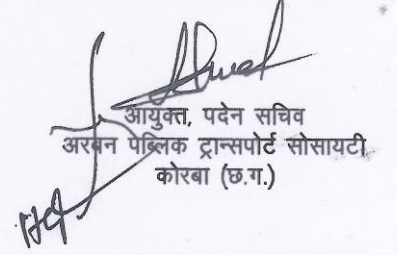 आयुक्त, पदेन सचिव
अरबन पब्लिक ट्रान्सपोर्ट सोसायटी
कोरबा (छ.ग.)